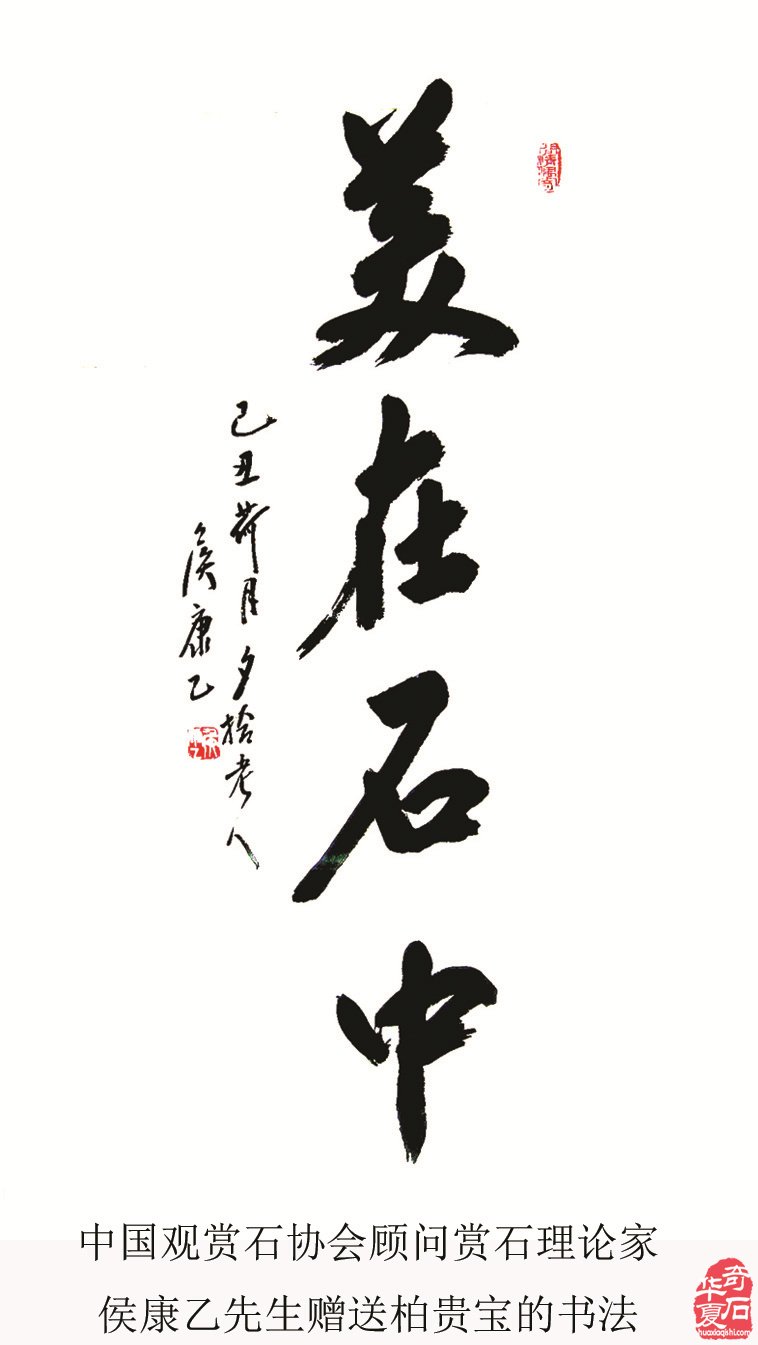 美在石中
己丑荷月夕拾老人
侯康乙
中国观赏石协会顾问赏石理论家
侯康乙先生赠送柏贵宝的书法
华夏奇石
huaxiaqishi.com